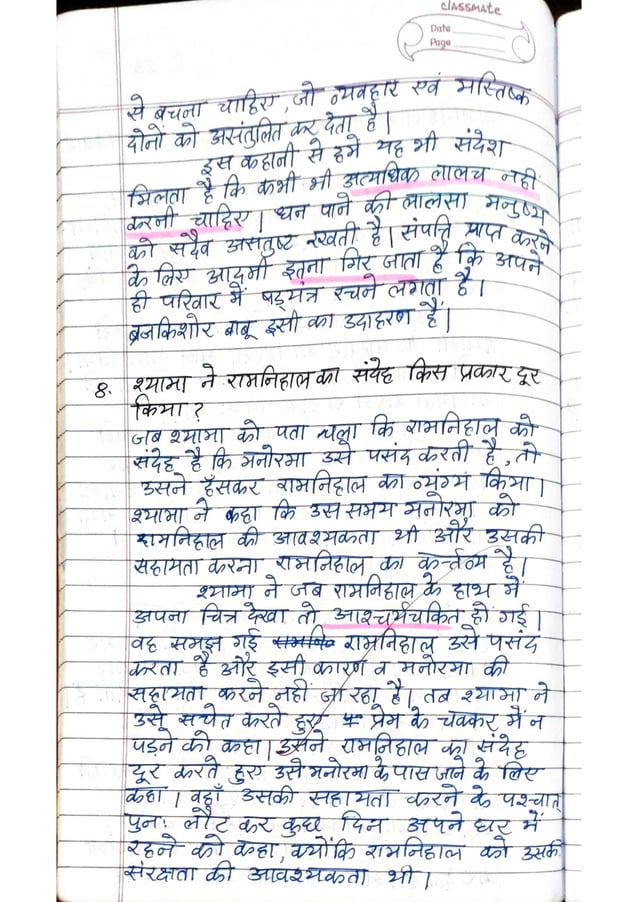 CLASSMATE
Date
Page
से बचना चाहिए, जो व्यवहार एवं मस्तिष्क
दोनों को असंतुलित कर देता है।
इस कहानी से हमें यह भी संदेश
मिलता है कि कभी भी अत्यधिक लालच नहीं
करनी चाहिए। धन पाने की लालसा मनुष्य
को सदैव असंतुष्ट रखती है। संपत्ति प्राप्त करने
के लिए आदमी इतना गिर जाता है कि अपने
ही परिवार में षड्यंत्र रचने लगता है।
ब्रजकिशोर बाबू इसी का उदाहरण हैं।
8. श्यामा ने रामनिहाल का संदेह किस प्रकार दूर
किया?
जब श्यामा को पता चला कि रामनिहाल को
संदेह है कि मनोरमा उसे पसंद करती है, तो
उसने हँसकर रामनिहाल का व्यंग्य किया।
श्यामा ने कहा कि उस समय मनोरमा को
रामनिहाल की आवश्यकता थी और उसकी
सहायता करना रामनिहाल का कर्त्तव्य है।
श्यामा ने जब रामनिहाल के हाथ में
अपना चित्र देखा तो आश्चर्यचकित हो गई।
वह समझ गई रामनिहाल उसे पसंद
करता है और इसी कारण व मनोरमा की
सहायता करने नहीं जा रहा है। तब श्यामा ने
उसे सचेत करते हुए प्रेम के चक्कर में न
पड़ने को कहा। उसने रामनिहाल का संदेह
दूर करते हुए उसे मनोरमा के पास जाने के लिए
कहा। वहाँ उसकी सहायता करने के पश्चात्
पुनः लौट कर कुछ दिन अपने घर में
रहने को कहा, क्योंकि रामनिहाल को उसकी
संरक्षता की आवश्यकता थी।